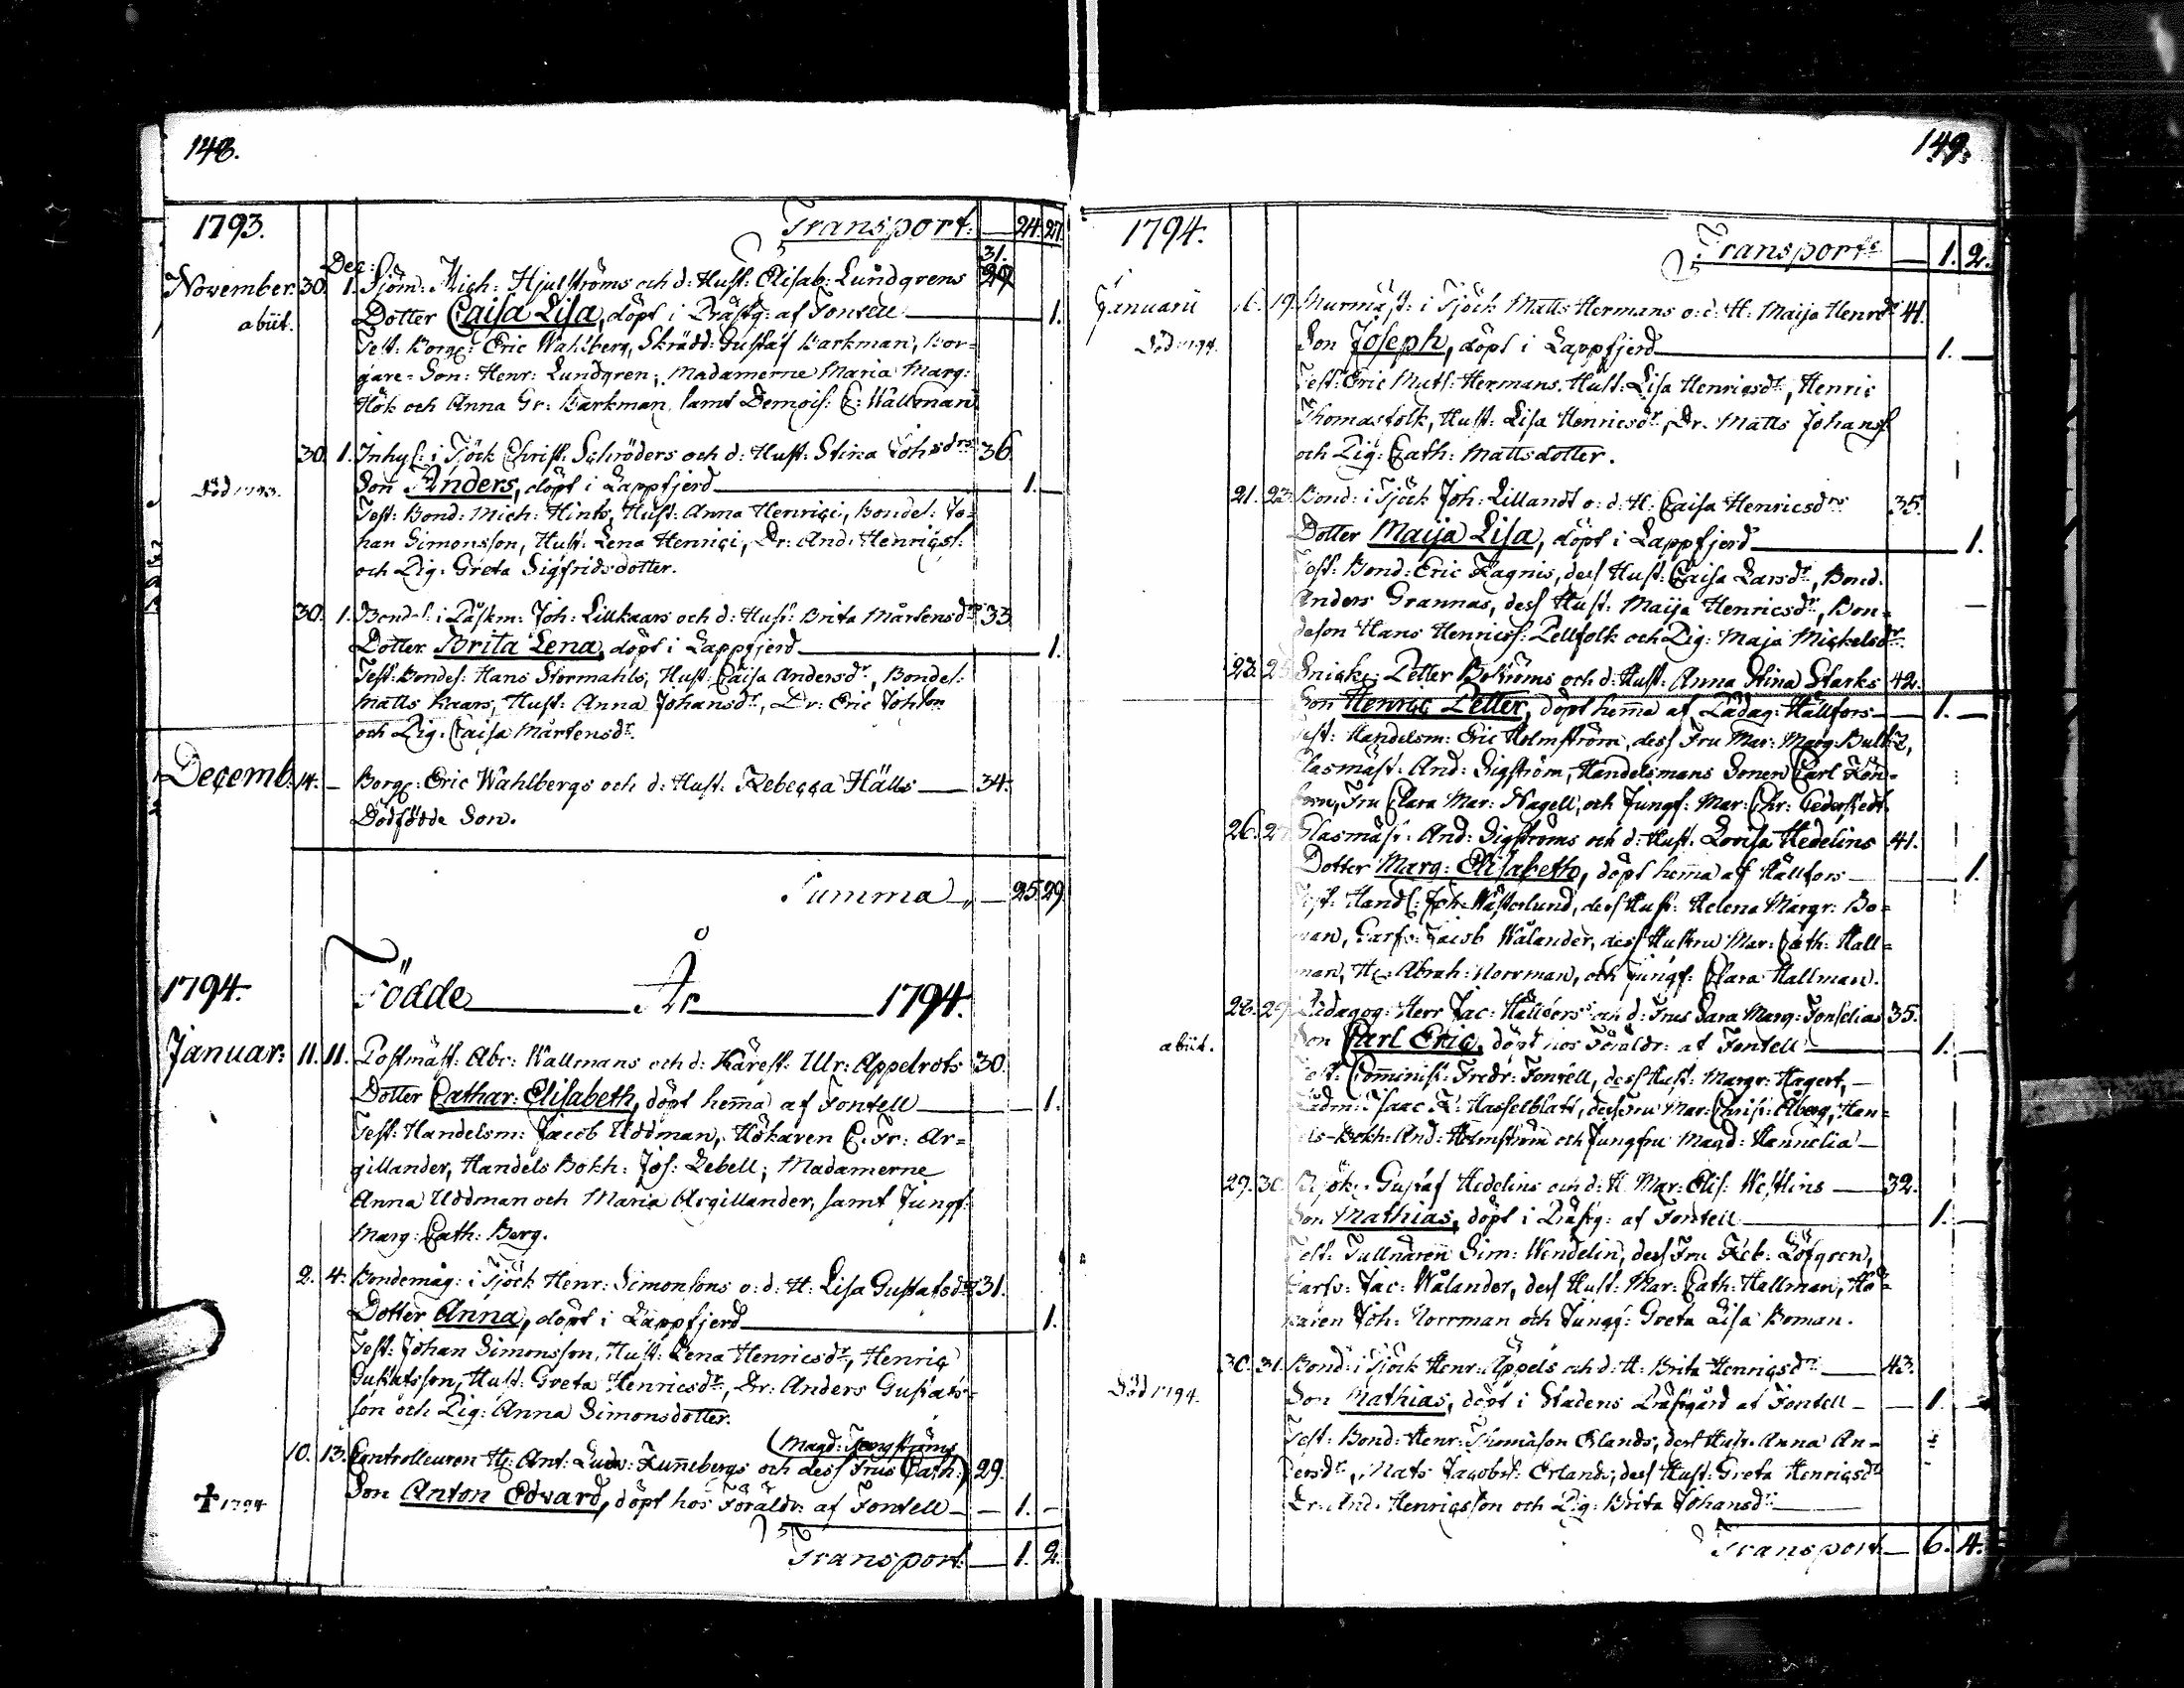 148.
1793. Transport. — 24. 27.
Dec: 31.
November. 30. 1. Sjöm: Mich: Hjulströms och d: Hust: Elisab: Lundgrens 29
abiit. Dotter Caisa Lisa, döpt i Prästg: af Fontell — 1.
Test: Borg: Eric Wahlberg, Skrädd: Gustaf Barkman, Bor=
gare-Son: Henr: Lundgren; Madamerne Maria Marg:
Hök och Anna Gr: Barkman, samt Demois: C: Wallman
30. 1. Inhys: i Tjöck Christ: Schröders och d: Hust: Stina Johsdrs 36.
Död 1793. Son Anders, döpt i Lappfjerd — 1. —
Test: Bond: Mich: Hinks, Hust: Anna Henrici, Bondes: Jo=
han Simonsson, Hust: Lena Henrici, Dr: And: Henricss:
och Pig: Greta Sigfridsdotter.
30. 1. Bond-s: i Påskm: Joh: Lillkaars och d: Hust: Brita Mårtensdrs 33
Dotter Brita Lena, döpt i Lappfjerd — 1.
Test: Bondes: Hans Stormahls, Hust: Caisa Andersdr, Bondes:
Matts Kaars, Hust: Anna Johansdr, Dr: Eric Johsson
och Pig: Caisa Mårtensdr.
Decemb: 14. — Borg: Eric Wahlbergs och d: Hust: Rebecca Hälls — 34.
Dödfödde Son.
Summa — 25. 29.
1794. Födde — År — 1794.
Januar: 11. 11. Postmäst: Abr: Wallmans och d: Kärest: Ulr: Appelrots 30.
Dotter Cathar: Elisabeth, döpt hemma af Fontell — 1.
Test: Handelsm: Jacob Uddman, Hökaren C: Fr: Ar=
gillander, Handels Bokh: Jos: Lebell; Madamerne
Anna Uddman och Maria Argillander, samt Jungf:
Marg: Cath: Berg.
2. 4. Bondemåg: i Tjöck Henr: Simonsons o: d: H: Lisa Gustafsdrs 31.
Dotter Anna, döpt i Lappfjerd — 1.
Test: Johan Simonsson, Hust: Lena Henricsdr, Henric
Gustafsson, Hust: Greta Henricsdr, Dr: Anders Gustafs=
son och Pig: Anna Simonsdotter.
(Magd:
10. 13. Controlleuren H: Ant: Ludv: Runnebergs och dess Frus Cath:) 29.
✝ 1794 Son Anton Edvard, döpt hos Föräldr: af Fontell — — 1. —
Transport. — 1. 2.
149.
1794. Transport — 1. 2.
Januarii 16. 19. Murmäst: i Tjöck Matts Hermans o: d: H: Maija Henrdrs 41.
Död 1794. Son Joseph, döpt i Lappfjerd — 1. —
Test: Eric Mats: Hermans. Hust: Lisa Henricsdr, Henric
Thomasfolk, Hust: Lisa Henricsdr, Dr. Matts Johanss
och Pig: Cath: Mattsdotter.
21. 23. Bond: i Tjöck Joh: Lillandt o: d: H: Caisa Henricsdrs 35.
Dotter Maija Lisa, döpt i Lappfjerd — 1.
Test: Bond: Eric Ragnis, dess Hust: Caisa Larsdr, Bond.
Anders Grannas, dess Hust: Maija Henricsdr, Bon=
deson Hans Henricss: Pellfolk och Pig: Maja Mickelsdr.
23. 25. Snick: Petter Boströms och d: Hust: Anna Stina Starks 42.
Son Henric Petter, döpt hemma af Pädag: Hällfors — — 1. —
Test: Handelsm: Eric Holmström, dess Fru Mar: Marg: Bultz,
Glasmäst: And: Sigström, Handelsmans Sonen Carl Rön-
Fru Clara Mar: Nagell, och Jungf: Mar: Chr: Cederstedt.
26. 27. Glasmäst: And: Sigströms och d: Hust: Lovisa Hedelins 41.
Dotter Marg: Elisabeth, döpt hemma af Hällfors — — 1.
Test: Hands: Joh: Wästerlund, dess Hust: Helena Margr: Bo=
man, Garfv: Jacob Wålander, dess Hustru Mar: Cath: Hall=
man, H: Abrah: Norrman, och Jungf: Clara Hallman.
28. 29. Pädagog: Herr Jac: Hällfors's och d: Frus Sara Marg: Fonselias 35.
abiit. Son Carl Eric, döpt hos Föräldr: af Fontell — 1. —
Test: Comminist: Fredr: Fontell, dess Hust: Margr: Hagert, —
Rådm: Isaac R: Hasselblatt, dess Fru Mar: Christ: Åberg, Han-
dls-Bokh: And: Holmström och Jungfru Magd: Hannelia —
29. 30. Gustaf Hedelins och d: H: Mar: Elis: Westlins — 32.
Son Mathias, döpt i Prästg: af Fontell — 1. —
Test: Tullnären Sim: Wendelin, dess Fru Reb: Löfgren,
Garfv: Jac: Wålander, dess Hust: Mar: Cath: Hallman, Hö=
karen Joh: Norrman och Jungf: Greta Lisa Boman.
30. 31. Bond: i Tjöck Henr: Äppels och d: H: Brita Henricsdr — 43.
Död 1794. Son Mathias, döpt i Stadens Prästgård af Fontell — — 1. —
Test: Bond: Henr: Thomason Erlands, dess Hust: Anna An-
dersdr, Mats Jacobss: Erlands, dess Hust: Greta Henricsdr
Dr: And: Henricsson och Pig: Brita Johansdr —
Transport. — 6. 4.